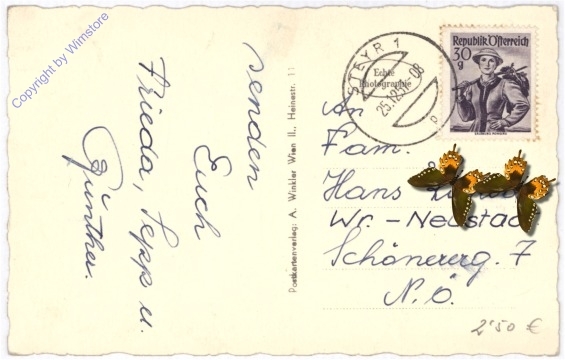 Copyright by Wimstore
senden
Euch
Frieda, Sepp u.
Günther.
Postkartenverlag: A. Winkler Wien II., Heinestr. 11
STEYR 1
Echte
Photographie
25.12.51-08
Republik Österreich
30
g
An
Fam.
Hans
Wr.-Neustadt
Schönererg. 7
N.Ö.
2'50 €